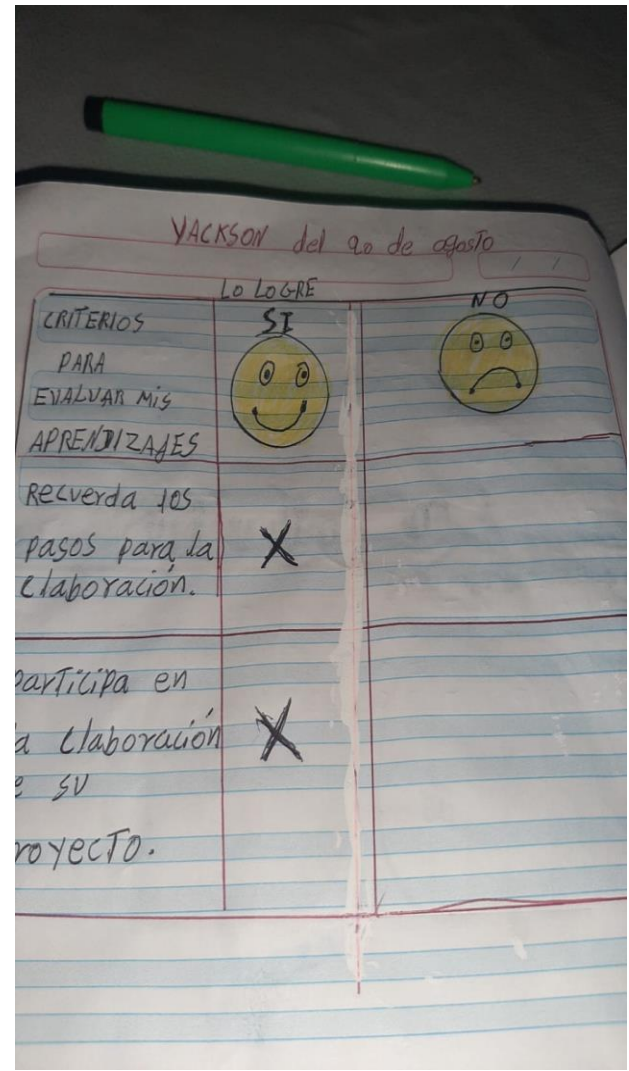 YACKSON del 20 de agosto
LO LOGRE
CRITERIOS
PARA
EVALUAR MiS
APRENDIZAJES
SI
NO
Recuerda los
pasos para la
elaboración.
X
participa en
a elaboración
e su
royecto.
X